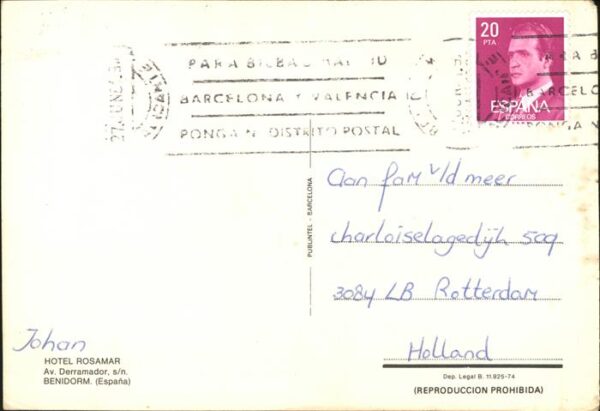 20
PTA
ESPAÑA
CORREOS
PARA BILBAO MADRID
BARCELONA Y VALENCIA
PONGA Nº DISTRITO POSTAL
PUBLINTEL - BARCELONA
Aan fam v/d meer
charloiselagedijk 509
3084 LB Rotterdam
Holland
Johan
HOTEL ROSAMAR
Av. Derramador, s/n.
BENIDORM. (España)
Dep. Legal B. 11.925-74
(REPRODUCCION PROHIBIDA)